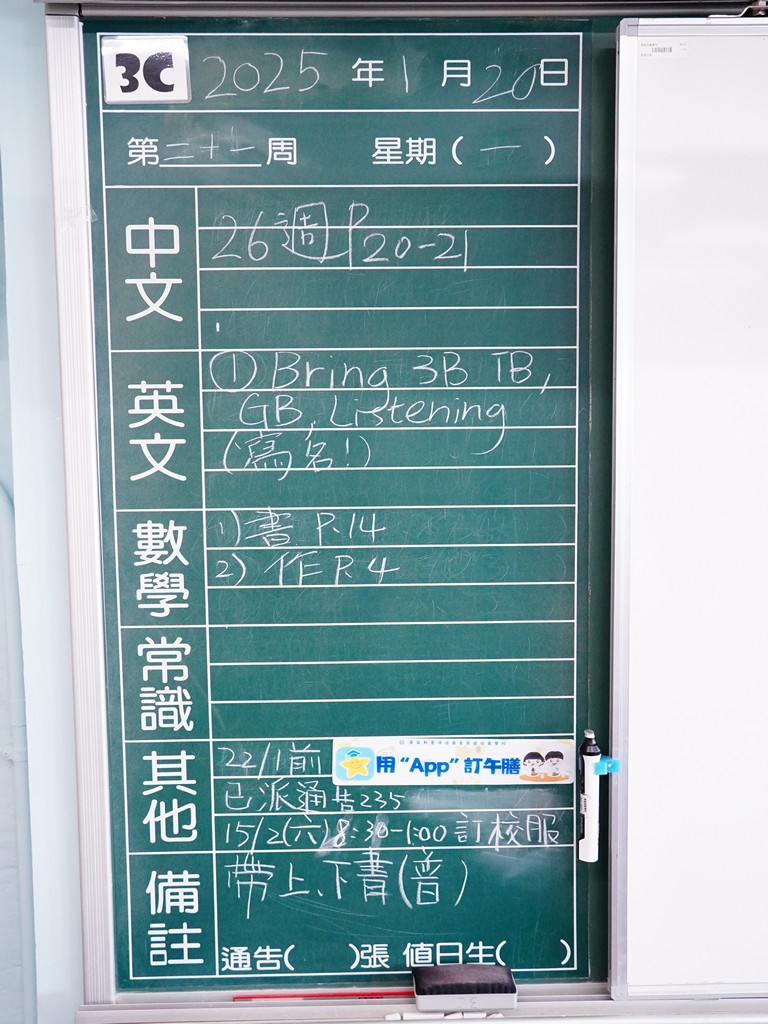 3C 2025年1月20日
第二十一周 星期(一)
中文
26週 P20-21
英文
① Bring 3B TB,
GB, Listening
(寫名!)
數學
1) 書 P.14
2) 作 P.4
常識
其他
22/1前 用“App”訂午膳
已派通告235
15/2(六)8:30-1:00訂校服
備註
帶上、下書(普)
通告( )張 值日生( )